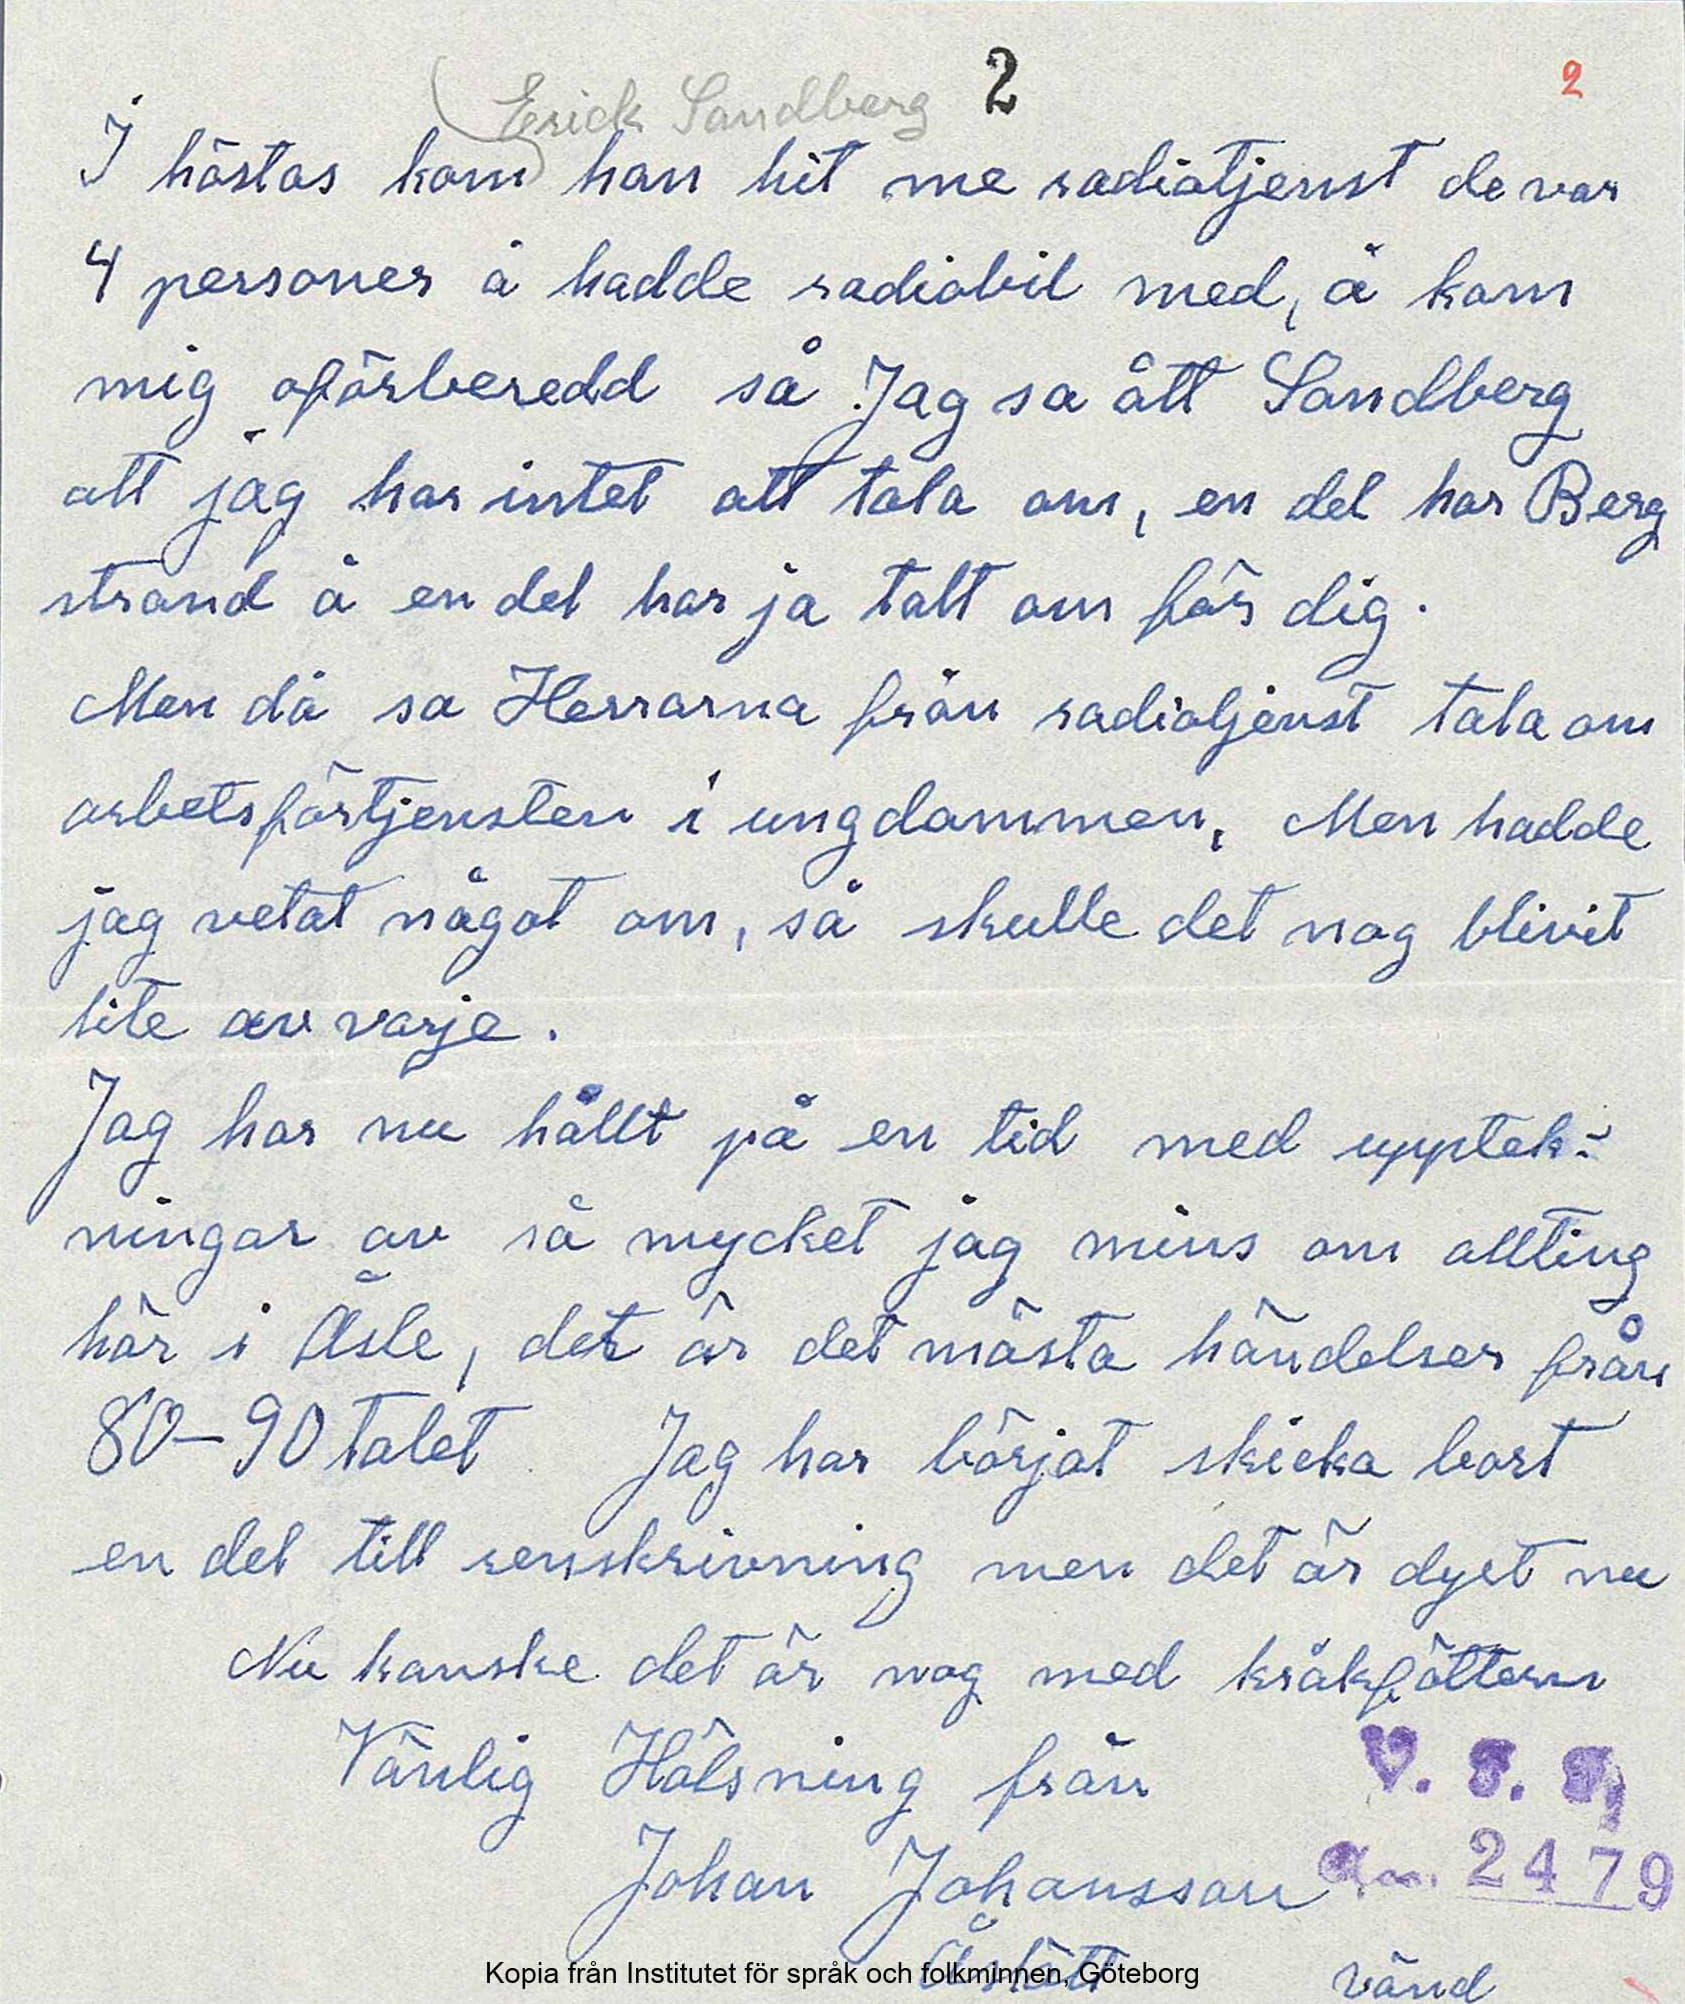 Erick Sandberg 2 2
I höstas kom han hit me radiotjenst de var
4 personer å hadde radiobil med, å kom
mig oförberedd så Jag sa ått Sandberg
att jag har intet att tala om, en del har Berg
strand å en del har ja talt om för dig.
Men då sa Herrarna från radiotjenst tala om
arbetsförtjensten i ungdommen, Men hadde
jag vetat något om, så skulle det nog blivit
lite av varje.
Jag har nu hållt på en tid med upptek-
ningar av så mycket jag mins om allting
här i Åsle, det är det mästa händelser från
80-90 talet Jag har börjat skicka bort
en del till renskrivning men det är dyrt nu
Nu kanske det är nog med kråkföttern
Vänlig Hälsning från
V. F. F,
Johan Johansson
2479
Kopia från Institutet för språk och folkminnen, Göteborg
vänd